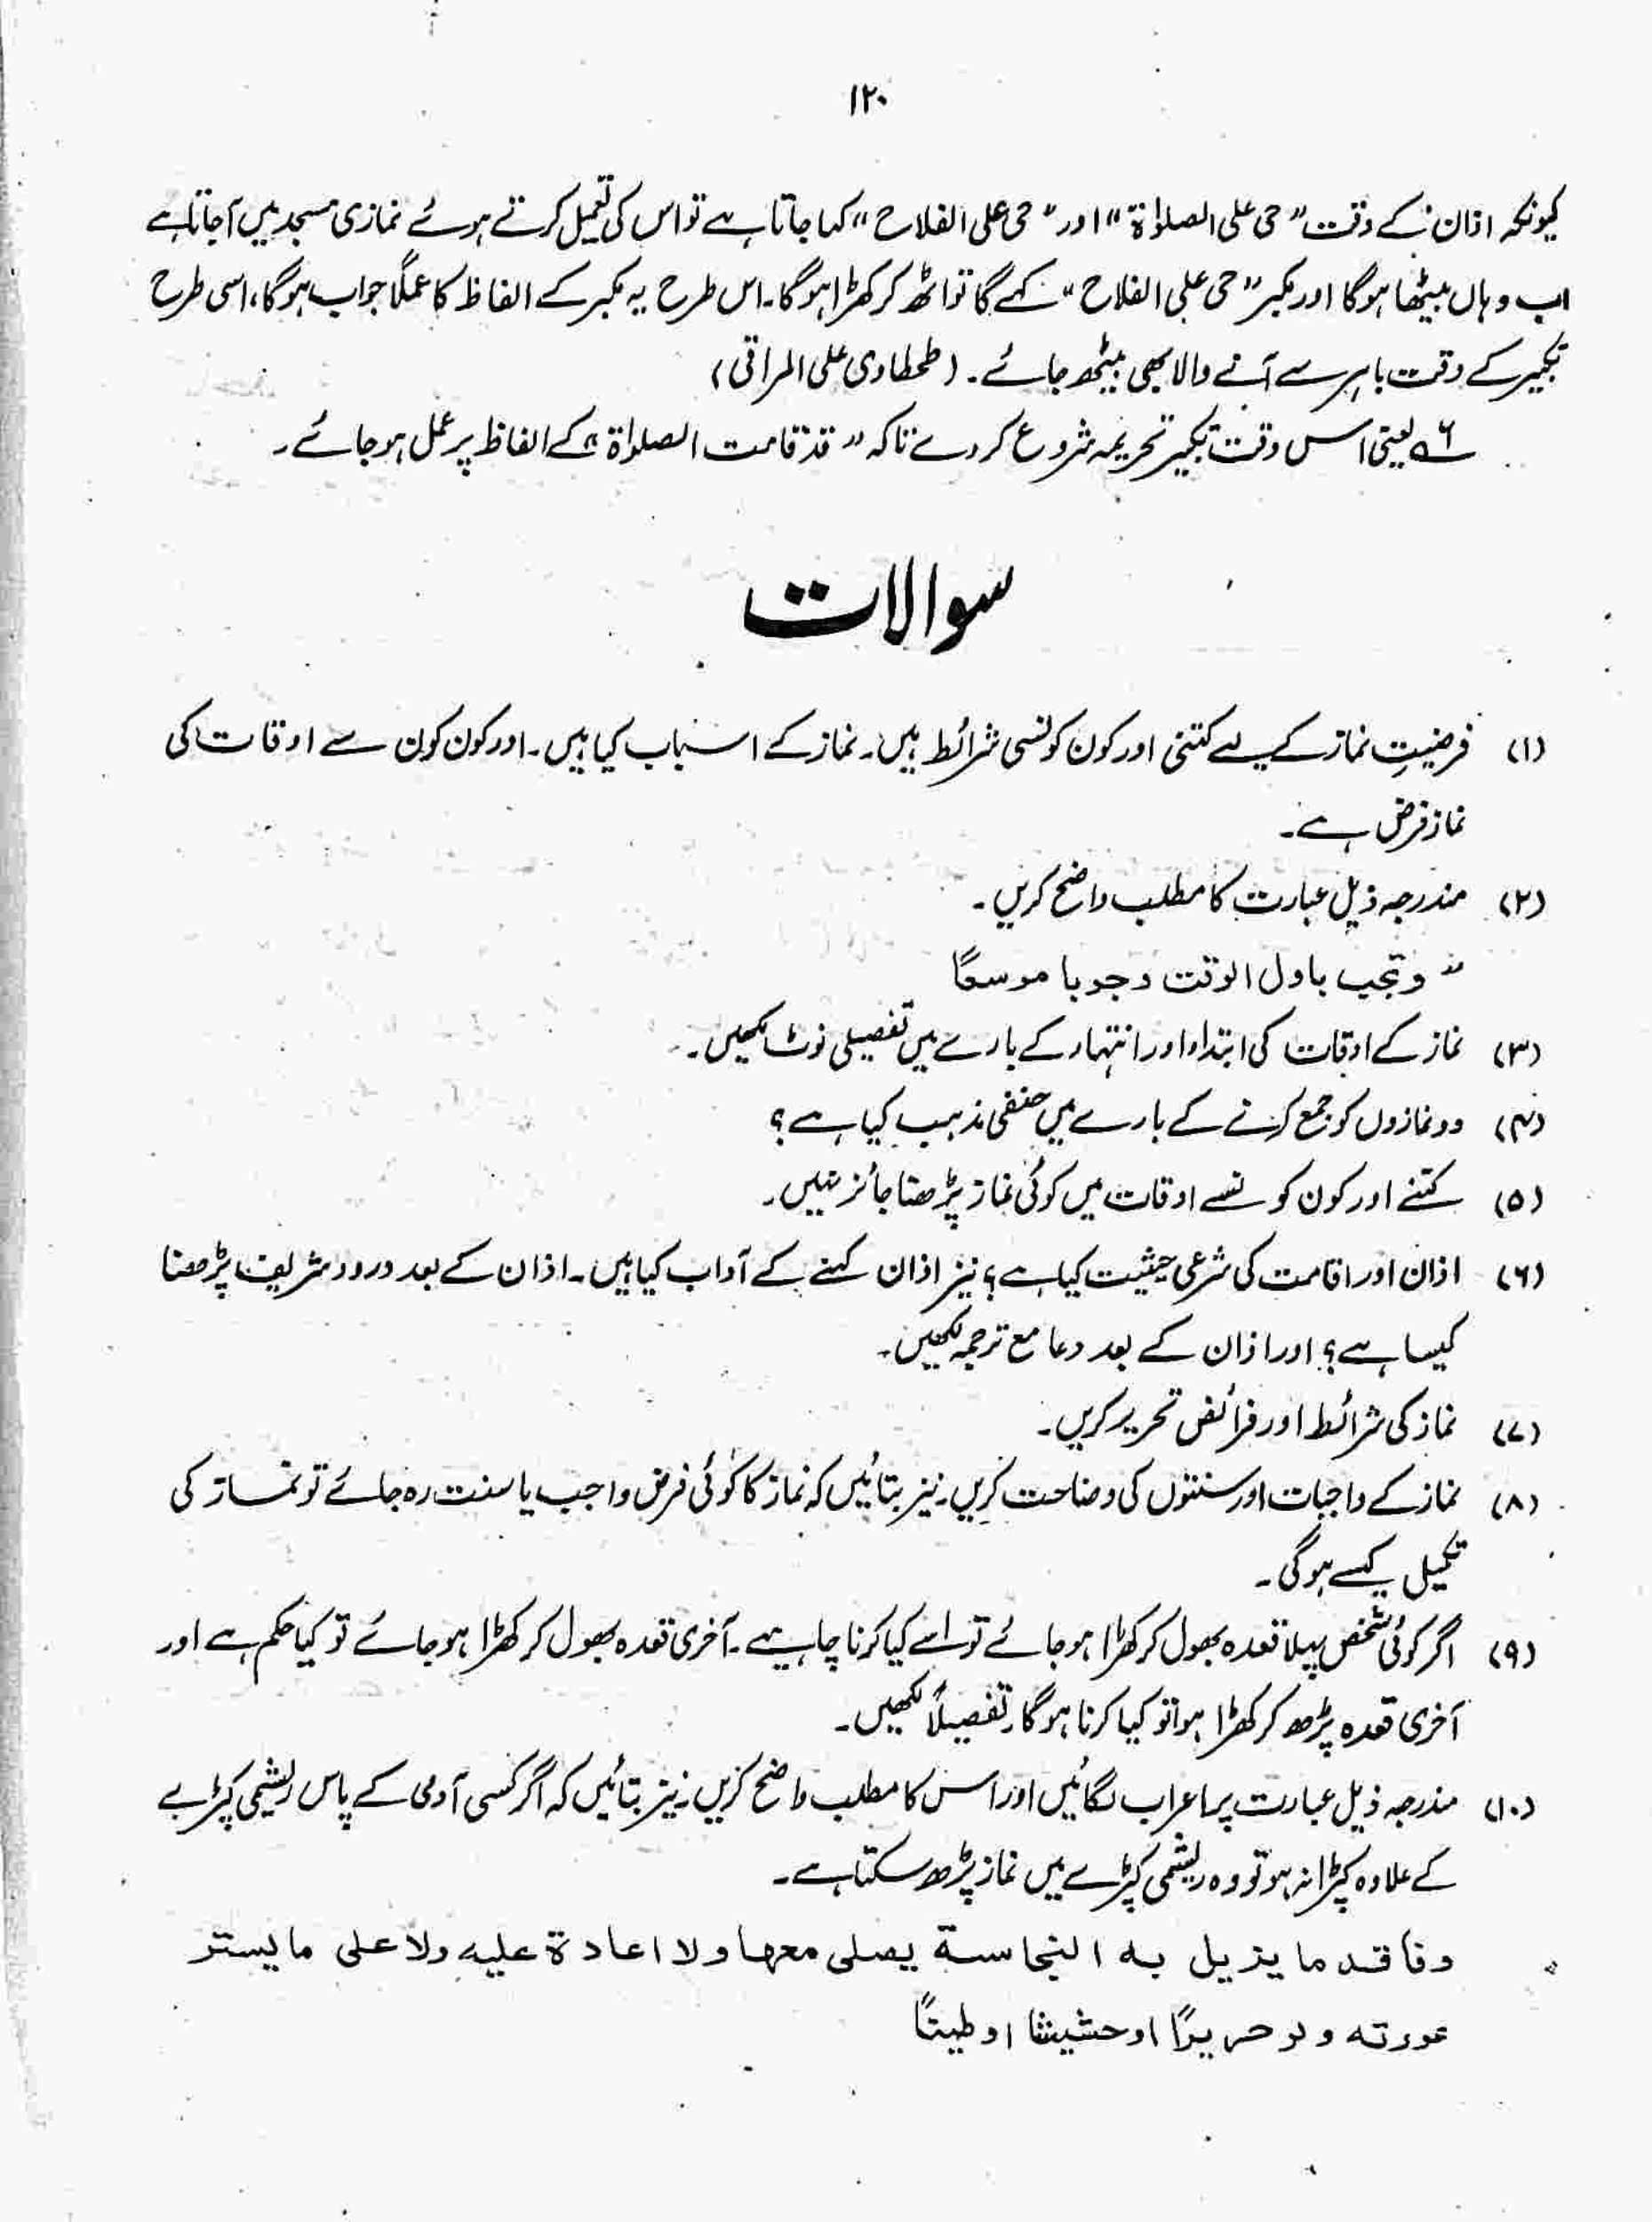 ۱۲۰
کیونکہ اذان کے وقت "حی علی الصلوٰۃ" اور "حی علی الفلاح" کہا جاتا ہے تو اس کی تعمیل کرتے ہوئے نمازی مسجد میں آ جاتا ہے
اب وہاں بیٹھا ہوگا اور مکبر "حی علی الفلاح" کہے گا تو اٹھ کر کھڑا ہوگا۔ اس طرح یہ مکبر کے الفاظ کا عملاً جواب ہوگا، اسی طرح
تکبیر کے وقت باہر سے آنے والا بھی بیٹھ جائے۔ (طحطاوی علی المراقی)
۶ یعنی اس وقت تکبیر تحریمہ شروع کر دے تاکہ "قد قامت الصلوٰۃ" کے الفاظ پر عمل ہو جائے۔
سوالات
(۱) فرضیتِ نماز کے لیے کتنی اور کون کونسی شرائط ہیں۔ نماز کے اسباب کیا ہیں۔ اور کون کون سے اوقات کی
نماز فرض ہے۔
(۲) مندرجہ ذیل عبارت کا مطلب واضح کریں۔
" وتجب باول الوقت وجوبا موسعًا
(۳) نماز کے اوقات کی ابتداء اور انتہاء کے بارے میں تفصیلی نوٹ لکھیں۔
(۴) دو نمازوں کو جمع کرنے کے بارے میں حنفی مذہب کیا ہے؟
(۵) کتنے اور کون کونسے اوقات میں کوئی نماز پڑھنا جائز نہیں۔
(۶) اذان اور اقامت کی شرعی حیثیت کیا ہے؟ نیز اذان کہنے کے آداب کیا ہیں۔ اذان کے بعد درود شریف پڑھنا
کیسا ہے؟ اور اذان کے بعد دعا مع ترجمہ لکھیں۔
(۷) نماز کی شرائط اور فرائض تحریر کریں۔
(۸) نماز کے واجبات اور سنتوں کی وضاحت کریں۔ نیز بتائیں کہ نماز کا کوئی فرض واجب یا سنت رہ جائے تو نماز کی
تکمیل کیسے ہوگی۔
(۹) اگر کوئی شخص پہلا قعدہ بھول کر کھڑا ہو جائے تو اسے کیا کرنا چاہیے۔ آخری قعدہ بھول کر کھڑا ہو جائے تو کیا حکم ہے اور
آخری قعدہ پڑھ کر کھڑا ہوا تو کیا کرنا ہوگا۔ تفصیلاً لکھیں۔
(۱۰) مندرجہ ذیل عبارت پر اعراب لگائیں اور اس کا مطلب واضح کریں۔ نیز بتائیں کہ اگر کسی آدمی کے پاس ریشمی کپڑے
کے علاوہ کپڑا نہ ہو تو وہ ریشمی کپڑے میں نماز پڑھ سکتا ہے۔
وفاقد ما يزيل به النجاسة يصلى معها ولا اعادة عليه ولا على ما يستر
عورته ولو حريرًا اوحشيشا اوطينًا